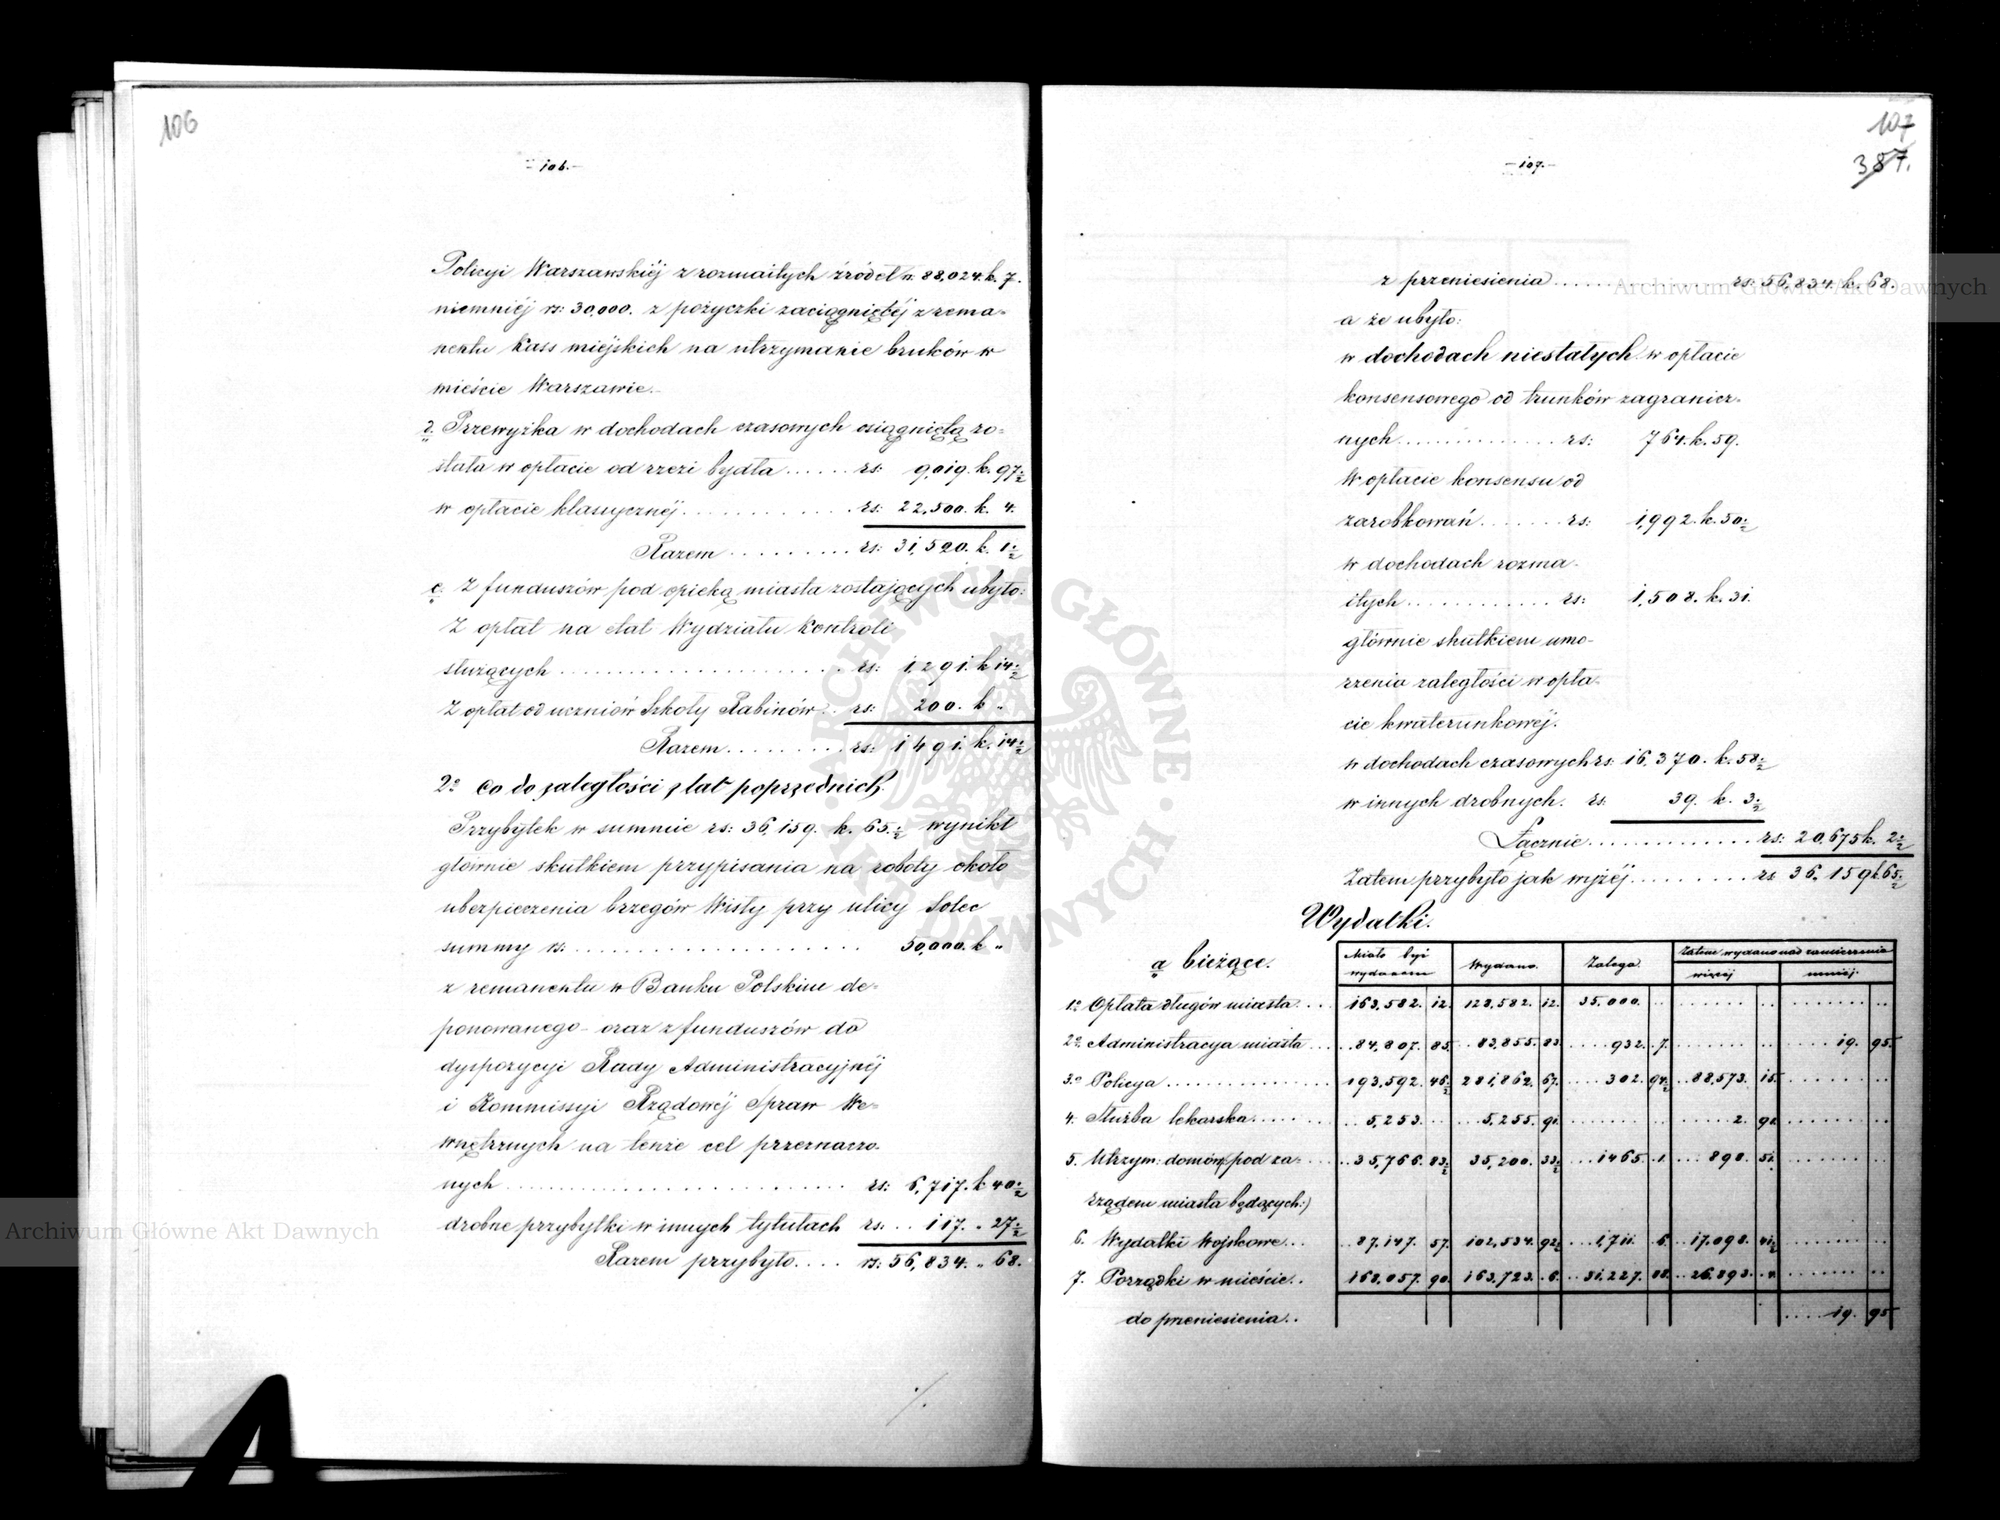 106
- 106. -
Policyi Warszawskiéj z rozmaitych źródeł rs. 88,024. k. 7.
niemniéj rs: 30,000. z pożyczki zaciągniętéj z rema-
nentu Kass miejskich na utrzymanie bruków w
mieście Warszawie.-
2. Przewyżka w dochodach czasowych osiągniętą zo-
stała w opłacie od rzezi bydła ...... rs: 9,019. k. 97½
w opłacie klassycznéj ............ rs: 22,500. k. 4.
Razem .......... rs: 31,520. k. 1½
c. Z funduszów pod opieką miasta zostających ubyło:
Z opłat na etat Wydziału Kontroli
służących ........................ rs: 1,291. k 14½
Z opłat od uczniów Szkoły Rabinów.. rs: 200. k „
Razem ......... rs: 1491. k. 14½
2o Co do zaległości z lat poprzednich.
Przybytek w summie rs: 36,159. k. 65.½ wynikł
głównie skutkiem przypisania na roboty około
ubezpieczenia brzegów Wisły przy ulicy Solec
summy rs. ........................ 50,000. k „
z remanentu w Banku Polskim de-
ponowanego - oraz z funduszów do
dyspozycyi Rady Administracyjnéj
i Kommissyi Rządowéj Spraw We-
wnętrznych na tenże cel przeznaczo-
nych ........................ rs: 6,717. k 40½
drobne przybytki w innych tytułach rs: .. 117. „ 27½
Razem przybyło .... rs: 56,834. „ 68.
107
387.
- 107. -
z przeniesienia ............ rs: 56,834. k. 68.
a że ubyło:
w dochodach niestałych w opłacie
konsensowego od trunków zagranicz-
nych ............ rs: 764. k. 59.
W opłacie konsensu od
zarobkowań ........ rs: 1,992. k. 50½
w dochodach rozma-
itych ............ rs: 1,508. k. 31.
głównie skutkiem umo-
rzenia zaległości w opła-
cie kwaterunkowéj.
w dochodach czasowych rs: 16,370. k. 58½
w innych drobnych. rs. 39. k. 3½
Łącznie ............ rs: 20,675 k. 2½
Zatem przybyło jak wyżéj ......... rs 36,159 k 65½
Wydatki.
a bieżące.
Miało być wydanem | Wydano. | Zalega. | Zatem wydano nad zamierzenie
więcéj | mniéj.
1o Opłata długów miasta .... 163,582. 12. 128,582. 12. 35,000. ..
2o Administracya miasta .... 84,807. 85. 83,855. 83. 932. 7. 19. 95.
3o Policya ............ 193,592. 46½ 281,862. 67. 302. 94½ 88,573. 15.
4. Służba lekarska ...... 5,253. .. 5,255. 91. 2. 91.
5. Utrzym: domów (pod za- .... 35,766. 83½ 35,200. 33½ 1465. 1. 898. 51.
rządem miasta będących:)
6. Wydatki Wojskowe ... 87,147. 57. 102,534. 92½ 1,711. 6. 17,098. 41½
7. Porządki w mieście .. 168,057. 90. 163,723. 6. 31,227. 88. 26,893. 4.
do przeniesienia .. 19. 95.
Archiwum Główne Akt Dawnych
Archiwum Główne Akt Dawnych
ARCHIWUM GŁÓWNE AKT DAWNYCH